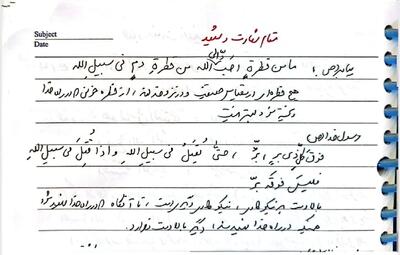 Subject
Date
مقام شهادت و شهید
پیامبر(ص) : ما من قطرةٍ احبّ الی الله من قطرةِ دمٍ فی سبیل الله
هیچ قطره‌ای در مقیاس حقیقت و در نزد خدا از قطره خونی که در راه خدا
ریخته شود بهتر نیست
رسول خدا(ص)
فوق کلِّ ذی بِرٍّ بِرٌّ ، حتّی یُقتَلُ فی سبیل الله و اذا قُتِلَ فی سبیل الله
فلیس فوقه بِرٌّ
بالادست هر نیکوکاری، نیکوکار دیگری است، تا آنگاه که در راه خدا شهید شود
همینکه در راه خدا شهید شد، دیگر بالادست ندارد.